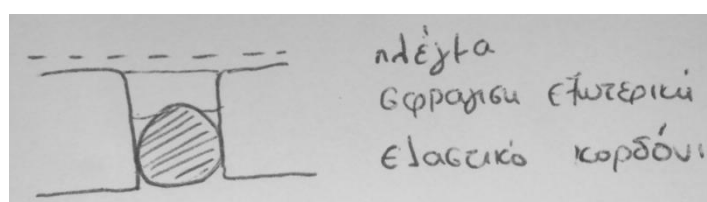 πλέγμα
σφραγιση εξωτερική
ελαστικό κορδόνι